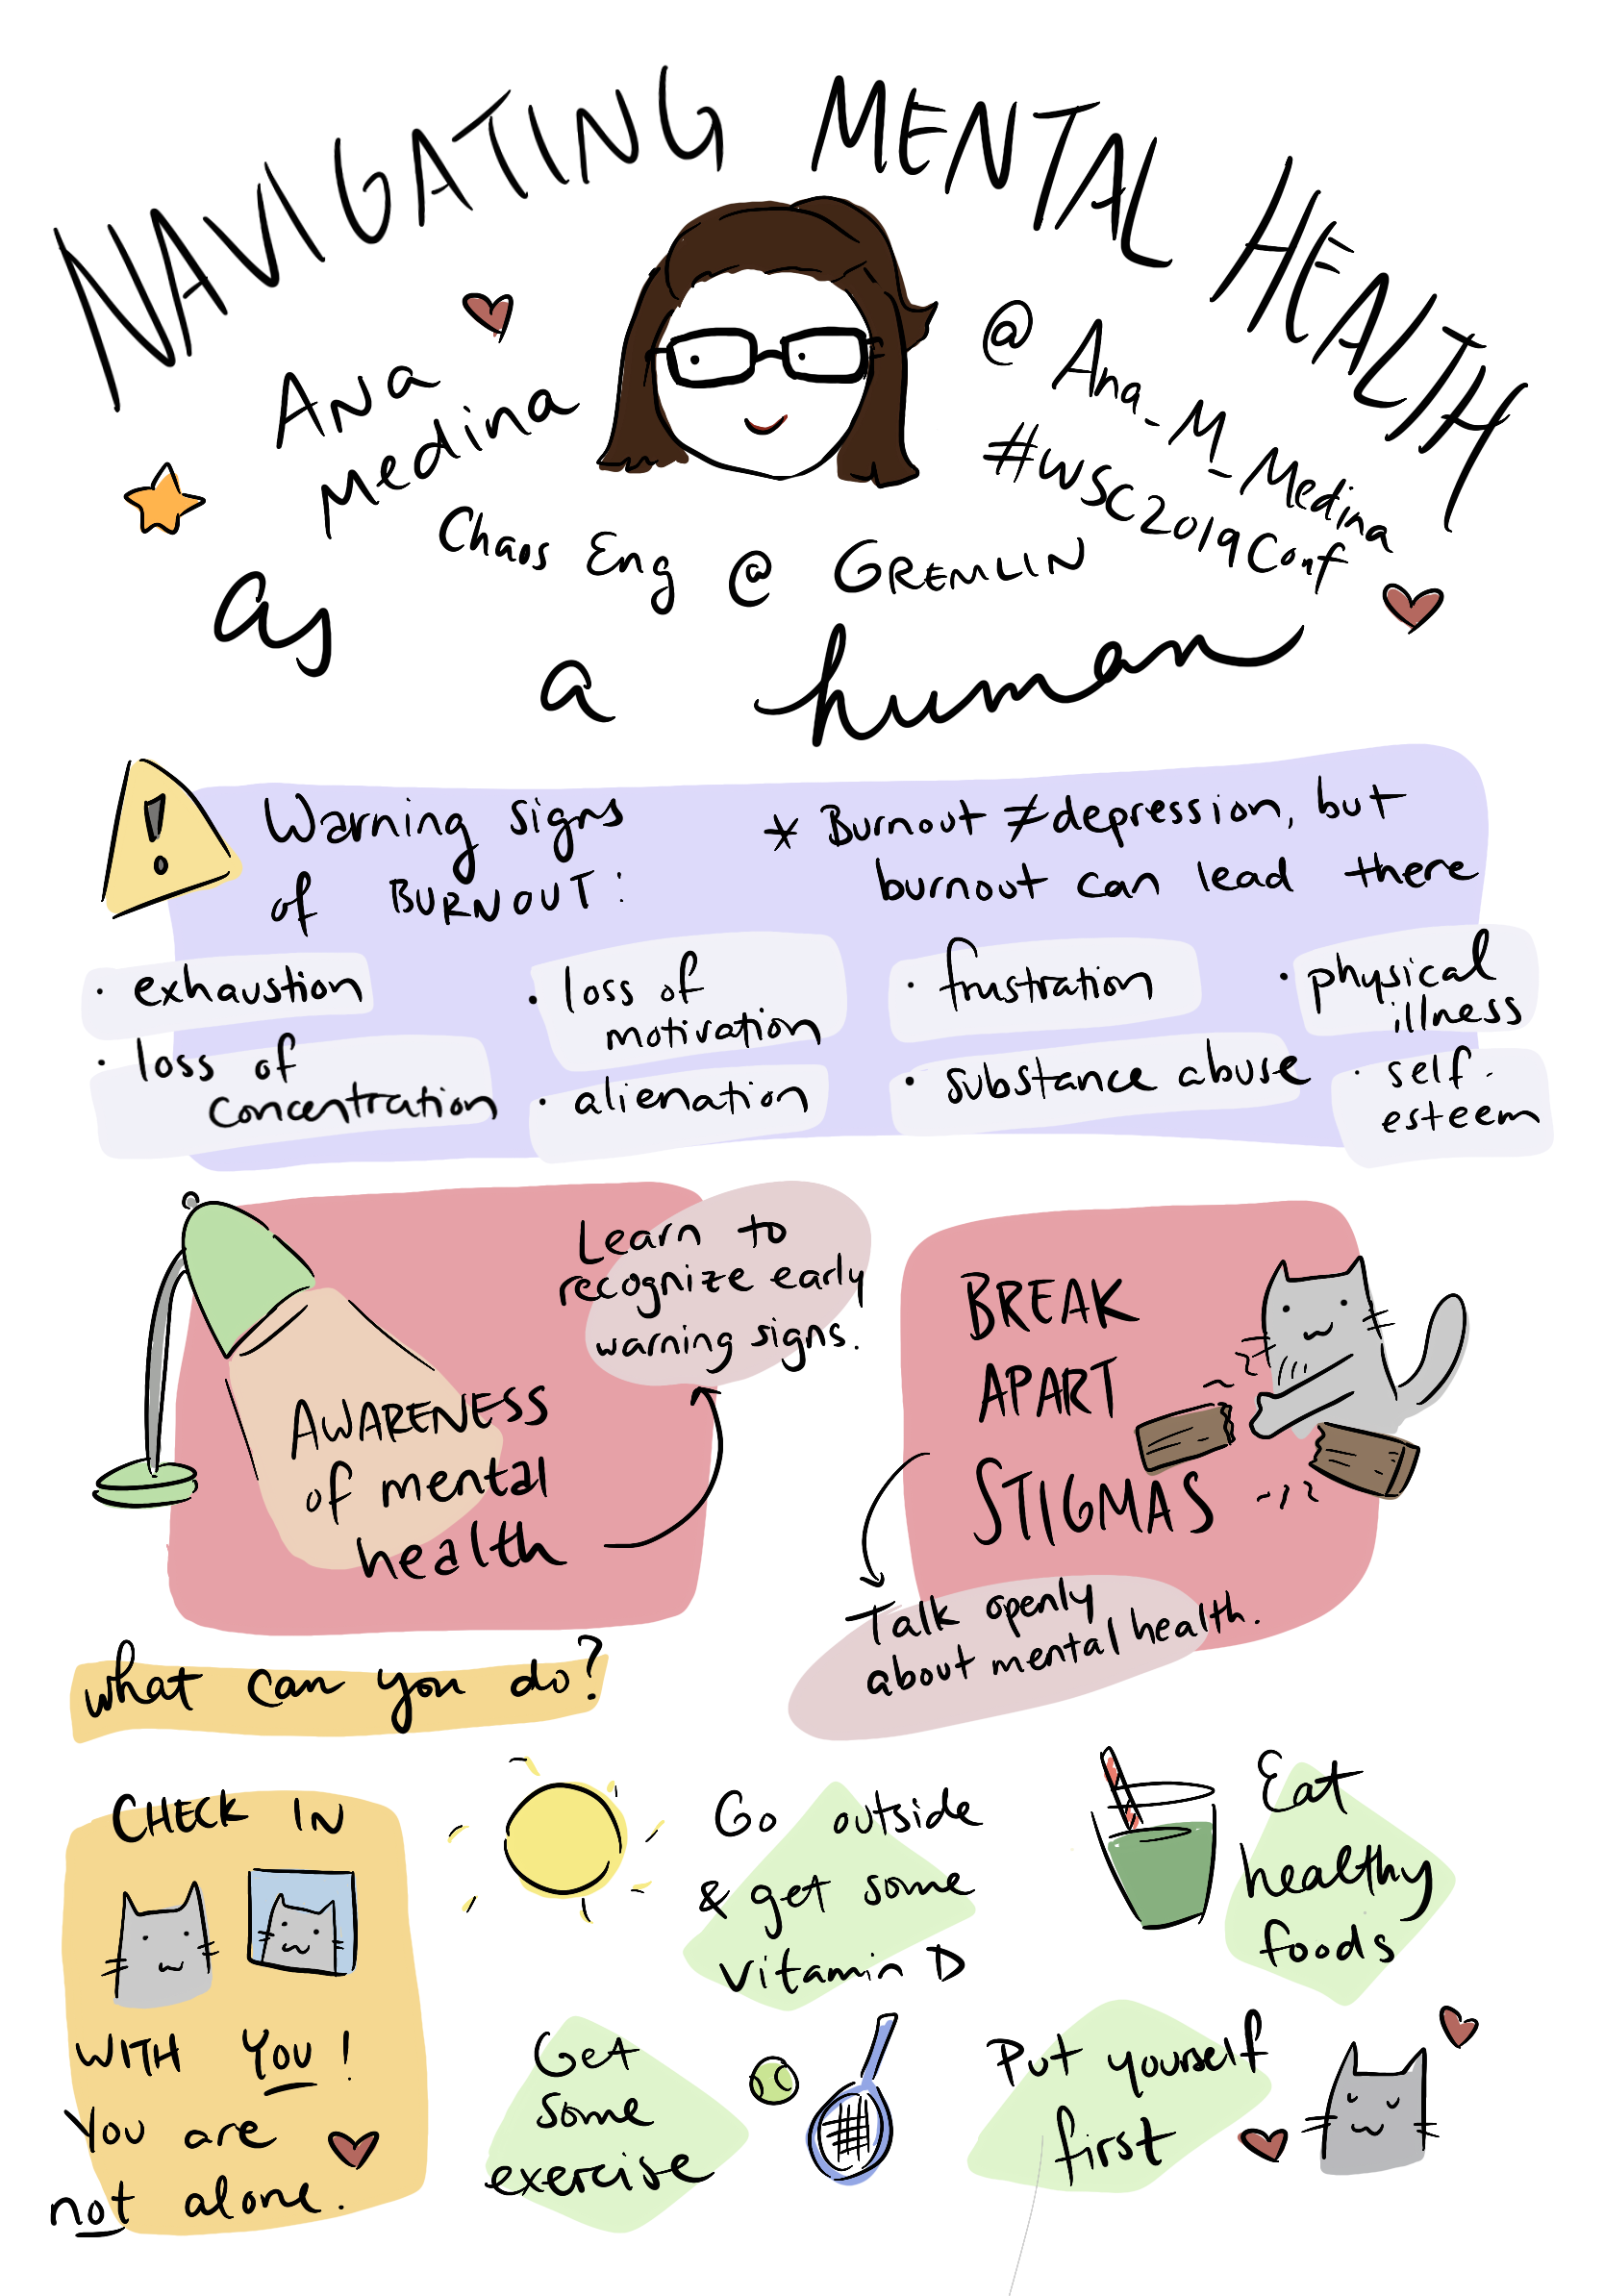 NAVIGATING MENTAL HEALTH
ANA
MEDINA
@Ana_M_Medina
#WSC2019Conf
Chaos Eng @ GREMLIN
as a human
!
Warning signs
of BURNOUT:
* Burnout ≠ depression, but
burnout can lead there
· exhaustion
· loss of
concentration
· loss of
motivation
· alienation
· frustration
· substance abuse
· physical
illness
· self-
esteem
AWARENESS
of mental
health
Learn to
recognize early
warning signs.
BREAK
APART
STIGMAS
Talk openly
about mental health.
what can you do?
CHECK IN
WITH YOU!
You are
not alone.
Go outside
& get some
vitamin D
Eat
healthy
foods
Get
some
exercise
Put yourself
first